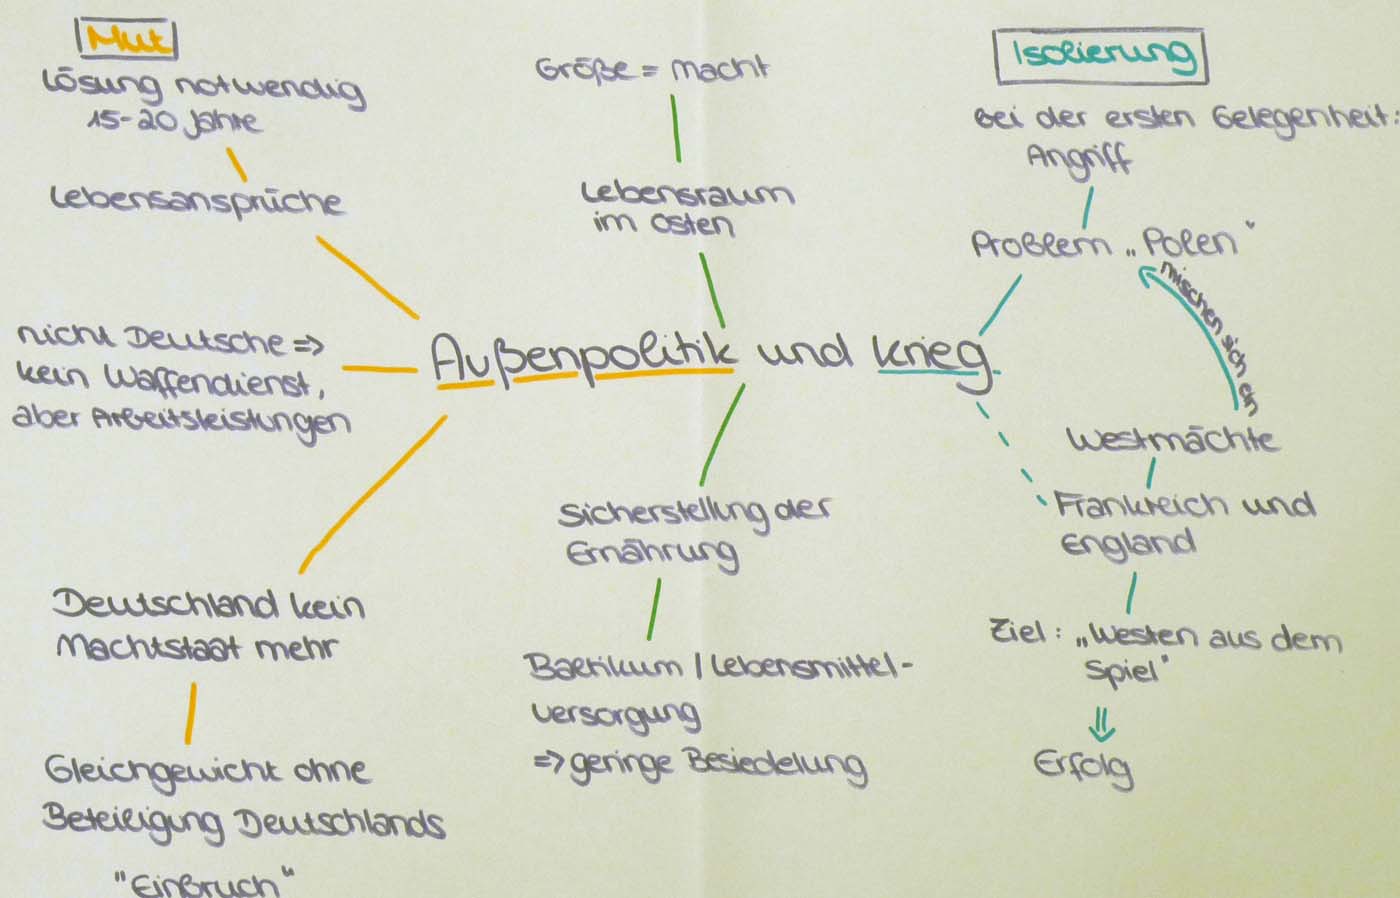 Mut
Lösung notwendig
15-20 Jahre
Lebensansprüche
nicht Deutsche =>
kein Waffendienst,
aber Arbeitsleistungen
Deutschland kein
Machtstaat mehr
Gleichgewicht ohne
Beteiligung Deutschlands
"Einbruch"
Größe = Macht
Lebensraum
im Osten
Außenpolitik und Krieg
Sicherstellung der
Ernährung
Baltikum / Lebensmittel-
versorgung
=> geringe Besiedelung
Isolierung
Bei der ersten Gelegenheit:
Angriff
Problem „Polen"
mischen sich ein
Westmächte
Frankreich und
England
Ziel: „Westen aus dem
Spiel"
Erfolg